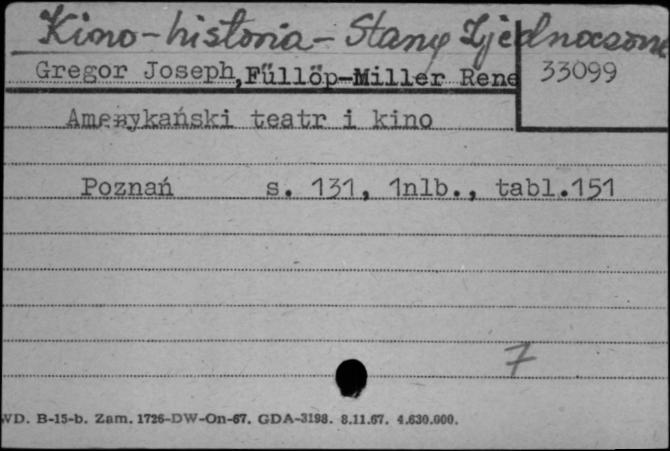 Kino-historia-Stany Zjednoczone
Gregor Joseph, Fűllöp-Miller Rene 33099
Amerykański teatr i kino
Poznań s. 131, 1nlb., tabl.151
7
WD. B-15-b. Zam. 1726-DW-On-67. GDA-3198. 8.11.67. 4.630.000.